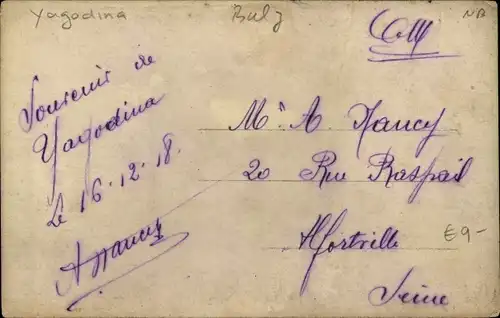 Yagodina
Bulg
NB
Souvenir de
Yagodina
Le 16.12.18.
A Nancy
Mr A. Nancy
20 Rue Raspail
Alfortville
Seine
€9-